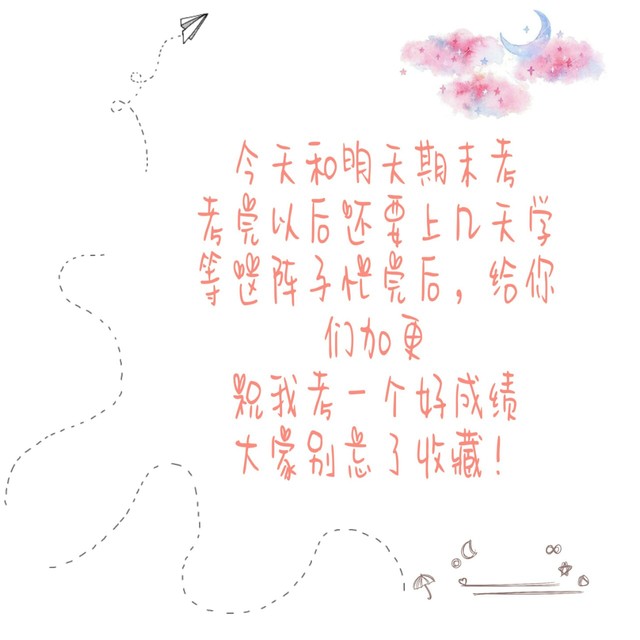 今天和明天期末考
考完以后还要上几天学
等这阵子忙完后，给你
们加更
祝我考一个好成绩
大家别忘了收藏！